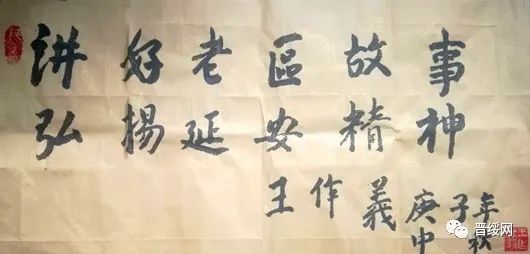 讲好老區故事
弘揚延安精神
王作義 庚子年
中秋
晋绥网